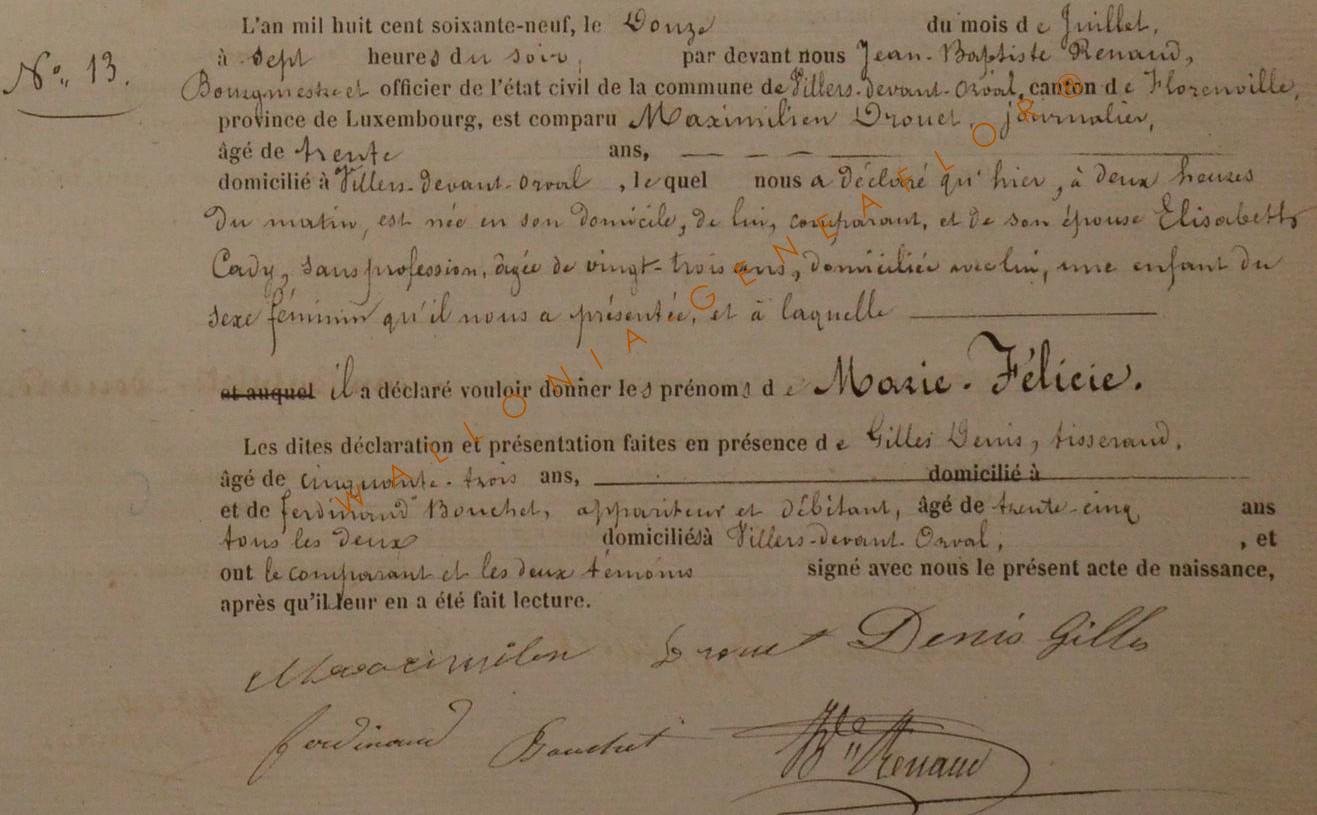 L'an mil huit cent soixante-neuf, le Douze du mois de Juillet,
à Sept heures du soir, par devant nous Jean-Baptiste Renaud,
N° 13.
Bourgmestre et officier de l'état civil de la commune de Villers-devant-Orval, canton de Florenville,
province de Luxembourg, est comparu Maximilien Drouet, journalier,
âgé de trente ans,
domicilié à Villers-devant-Orval, lequel nous a déclaré qu'hier, à deux heures
du matin, est née en son domicile, de lui, comparant, et de son épouse Elisabeth
Cady, sans profession, âgée de vingt-trois ans, domiciliée avec lui, une enfant du
sexe féminin qu'il nous a présentée, et à laquelle
et auquel il a déclaré vouloir donner les prénoms de Marie-Félicie.
Les dites déclaration et présentation faites en présence de Gilles Denis, tisserand,
âgé de cinquante-trois ans, domicilié à
et de ferdinand Bouchet, appariteur et débitant, âgé de trente-cinq ans
tous les deux domiciliés à Villers-devant-Orval, , et
ont le comparant et les deux témoins signé avec nous le présent acte de naissance,
après qu'il leur en a été fait lecture.
Maximilien Drouet Denis Gilles
ferdinand Bouchet Renaud
WALLONIA GENEALOR®